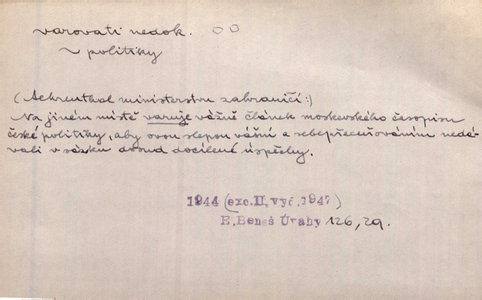 varovati nedok.
~ politiky
(Aehrenthal ministerstvu zahraničí:)
Na jiném místě varuje vážně článek moskevského časopisu
české politiky, aby svou slepou vášní a sebepřeceňováním nedá-
vali v sázku dosud docílené úspěchy.
1944 (exc. II, vyč. 1947)
E. Beneš Úvahy 126, 29.